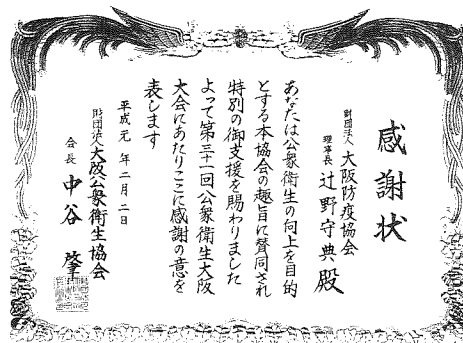 感謝状
財団法人 大阪防疫協会
理事長 辻野守典殿
あなたは公衆衛生の向上を目的
とする本協会の趣旨に賛同され
特別の御支援を賜わりました
よって第三十一回公衆衛生大阪
大会にあたりここに感謝の意を
表します
平成元年二月二日
財団法人 大阪公衆衛生協会
会長 中谷肇